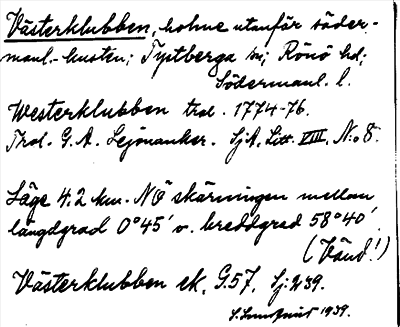 Västerklubben, holme utanför söder-
manl.-kusten; Tystberga sn; Rönö hd;
Södermanl. l.
Westerklubben trol. 1774-76.
Trol. G. A. Lejonanker. SjA. Litt. VIII, N:o 8.
Läge 4.2 km. NÖ skärningen mellan
längdgrad 0°45' v. breddgrad 58°40'.
(Vänd!)
Västerklubben ek. G.57. Sj:239.
1939.